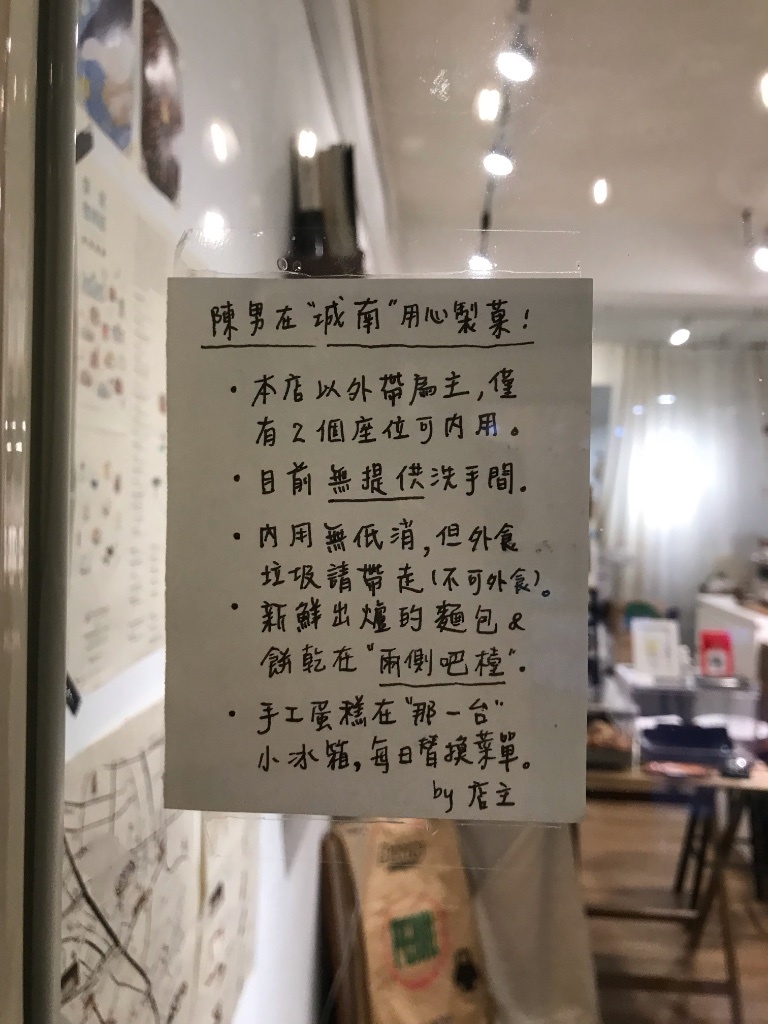 陳男在"城南"用心製菓!
・本店以外帶為主,僅
有2個座位可內用。
・目前無提供洗手間。
・內用無低消,但外食
垃圾請帶走(不可外食)。
・新鮮出爐的麵包&
餅乾在"兩側吧檯"。
・手工蛋糕在"那一台"
小冰箱,每日替換菜單。
by 店主